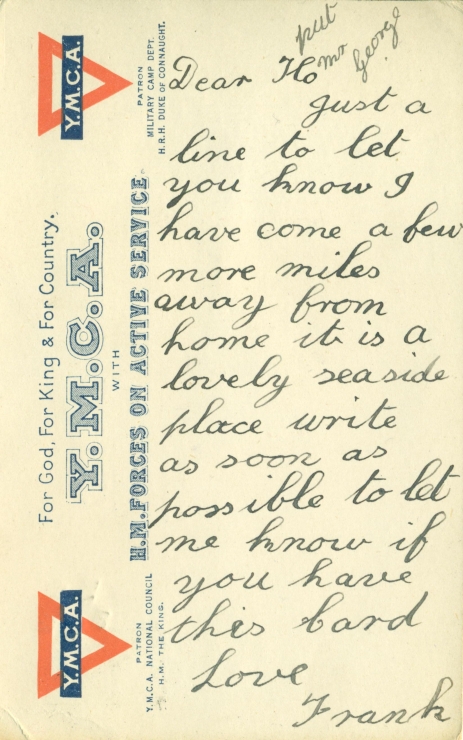 Dear Ho
put
mr
George
Just a
line to let
you know I
have come a few
more miles
away from
home it is a
lovely seaside
place write
as soon as
possible to let
me know if
you have
this Card
Love
Frank
For God, For King & For Country.
Y.M.C.A.
WITH
H.M. FORCES ON ACTIVE SERVICE
Y.M.C.A.
PATRON
MILITARY CAMP DEPT.
H.R.H. DUKE OF CONNAUGHT.
Y.M.C.A.
PATRON
Y.M.C.A. NATIONAL COUNCIL
H.M. THE KING.